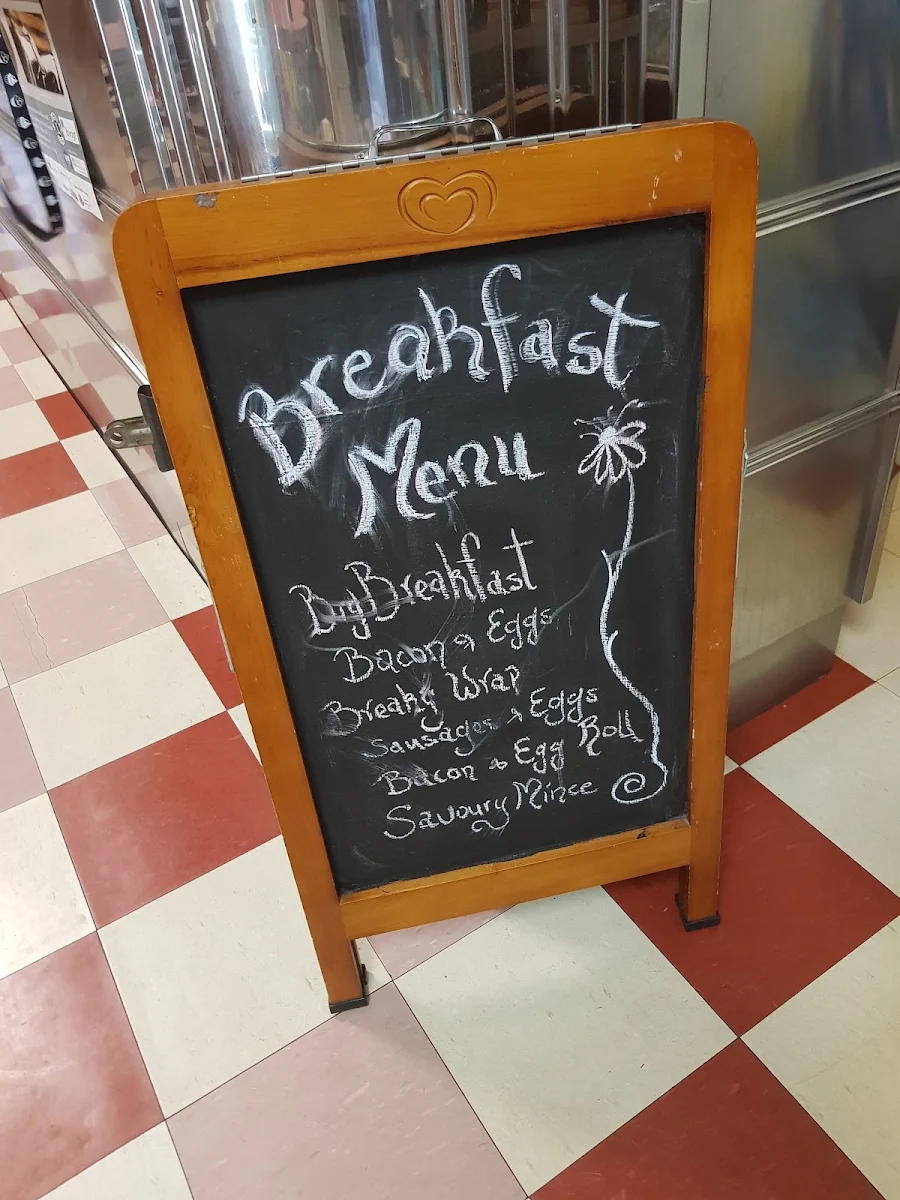 Breakfast
Menu
Big Breakfast
Bacon & Eggs
Breaky Wrap
Sausages & Eggs
Bacon & Egg Roll
Savoury Mince